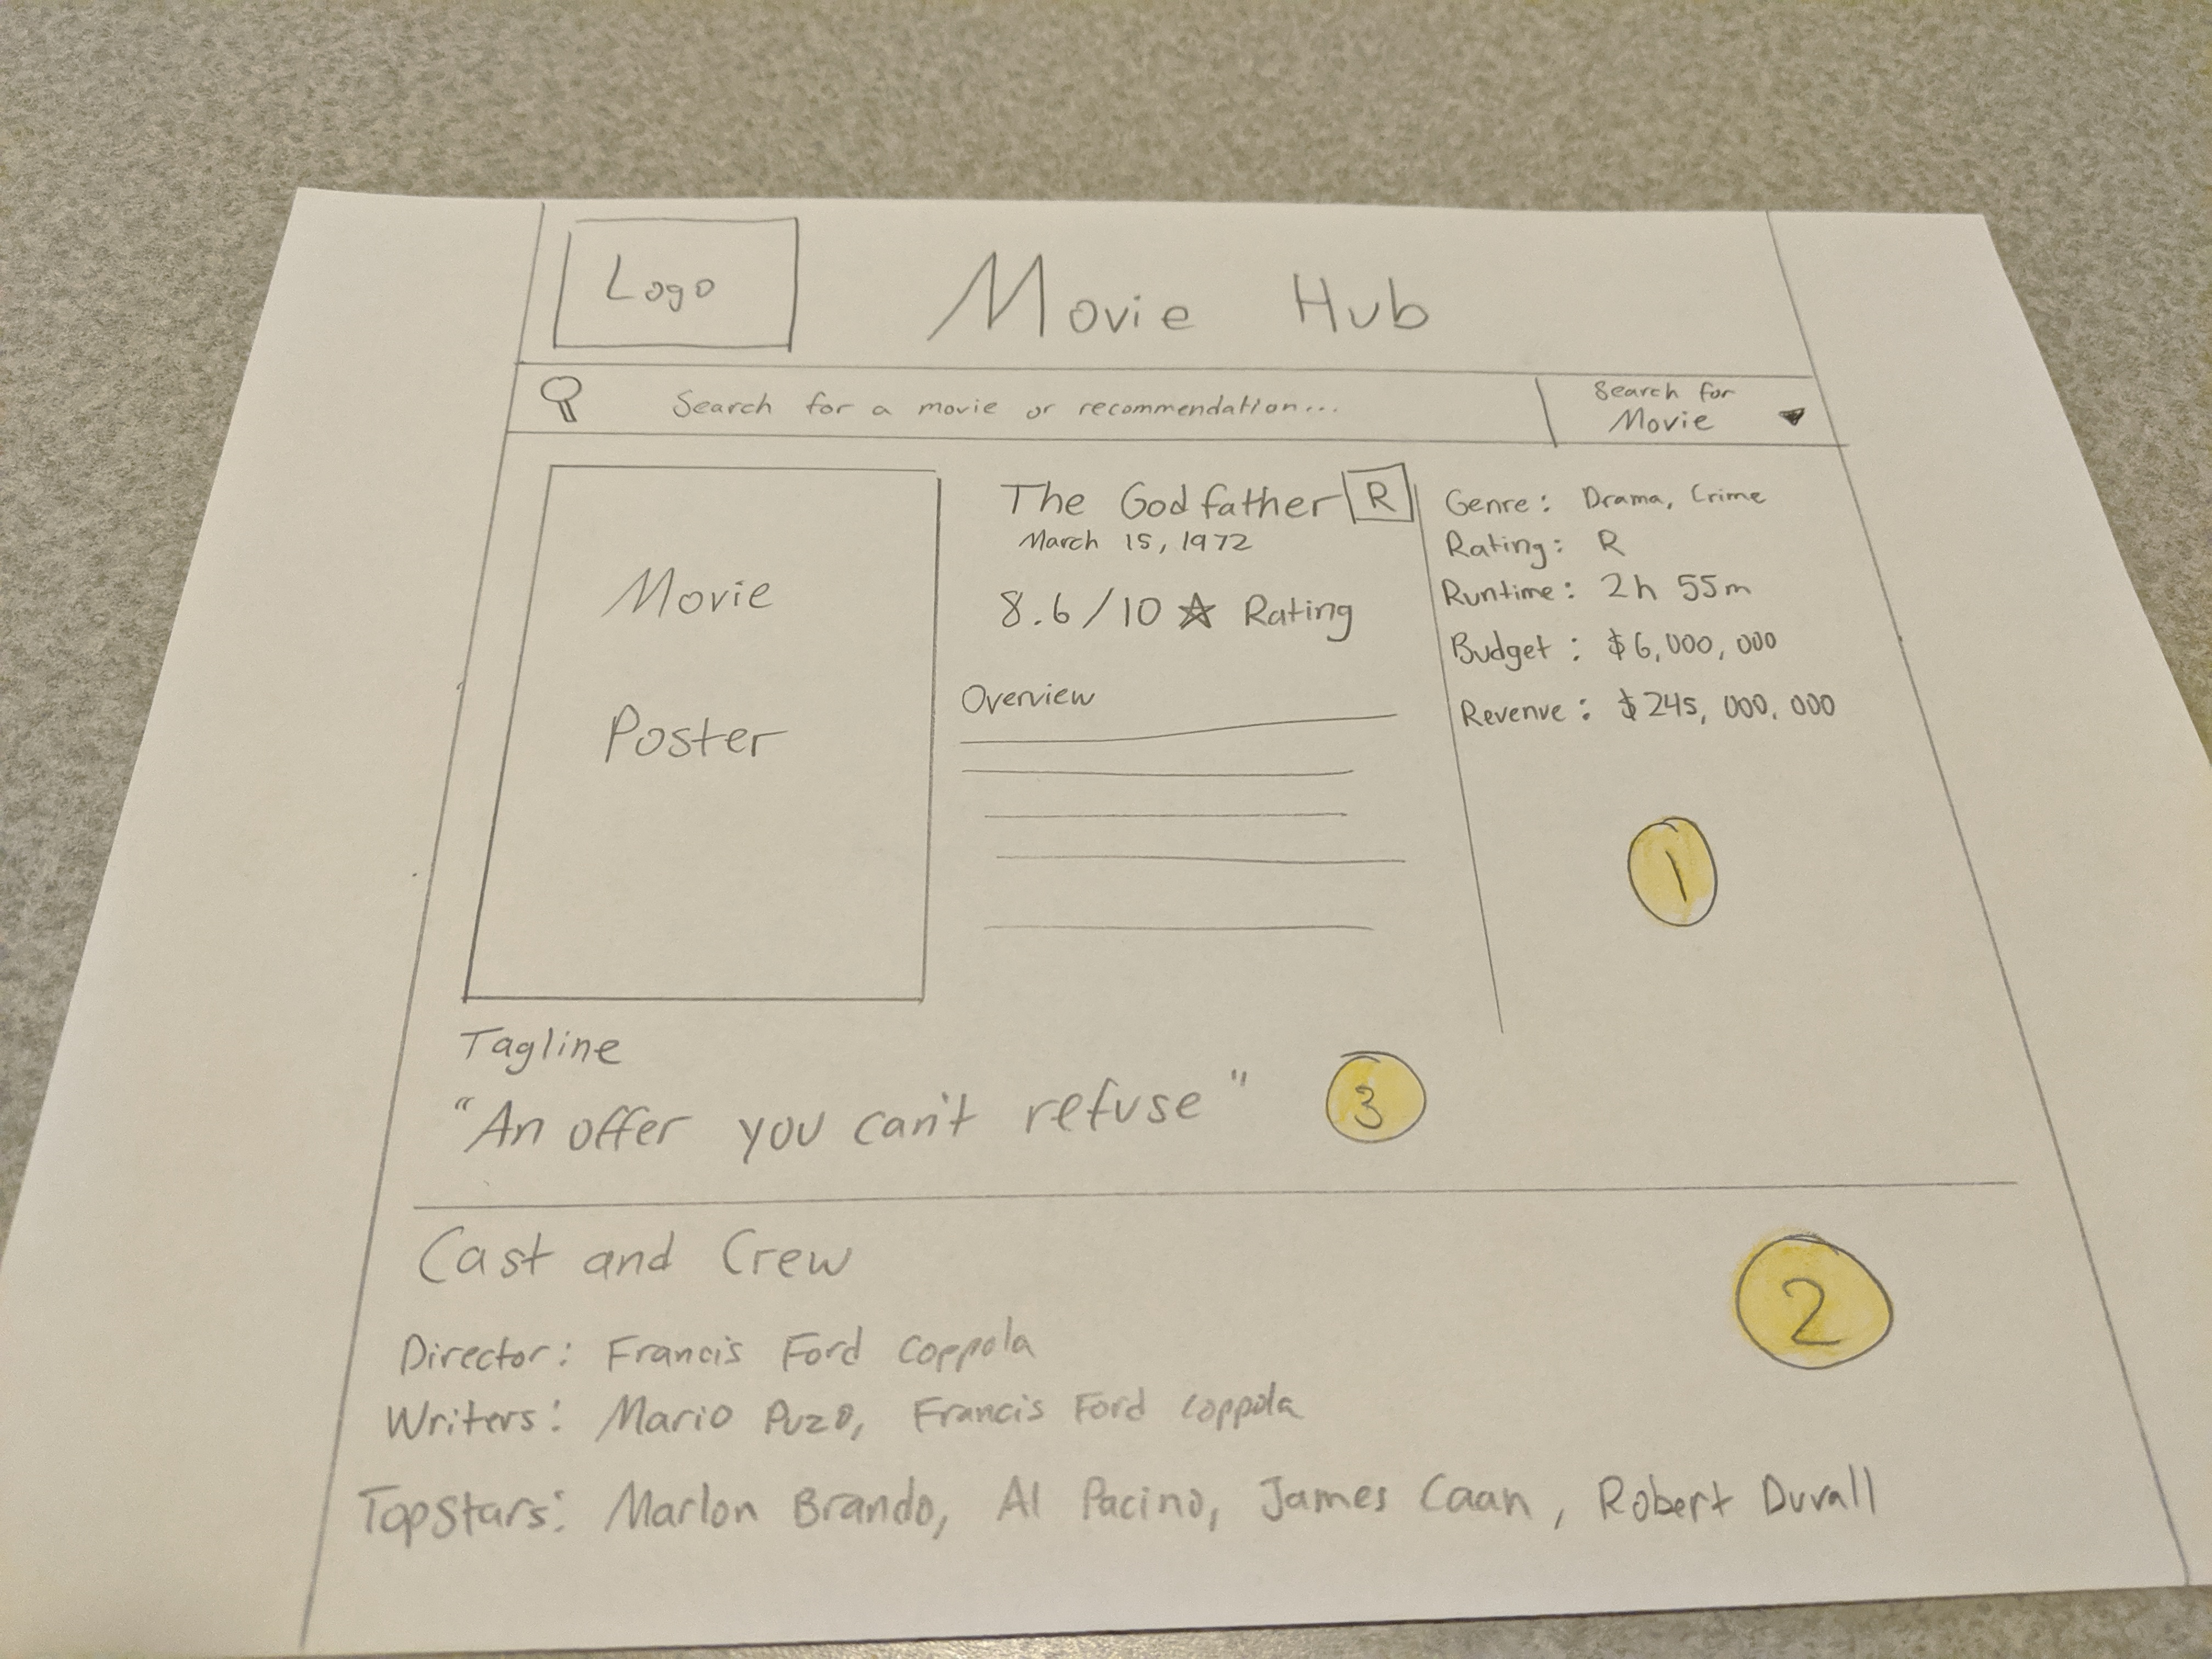 Logo
Movie Hub
Search for a movie or recommendation...
Search for
Movie
Movie
Poster
The Godfather R
March 15, 1972
8.6/10 ☆ Rating
Overview
Genre: Drama, Crime
Rating: R
Runtime: 2h 55m
Budget: $6,000,000
Revenue: $245,000,000
1
Tagline
"An offer you can't refuse"
3
Cast and Crew
2
Director: Francis Ford Coppola
Writers: Mario Puzo, Francis Ford Coppola
Top Stars: Marlon Brando, Al Pacino, James Caan, Robert Duvall